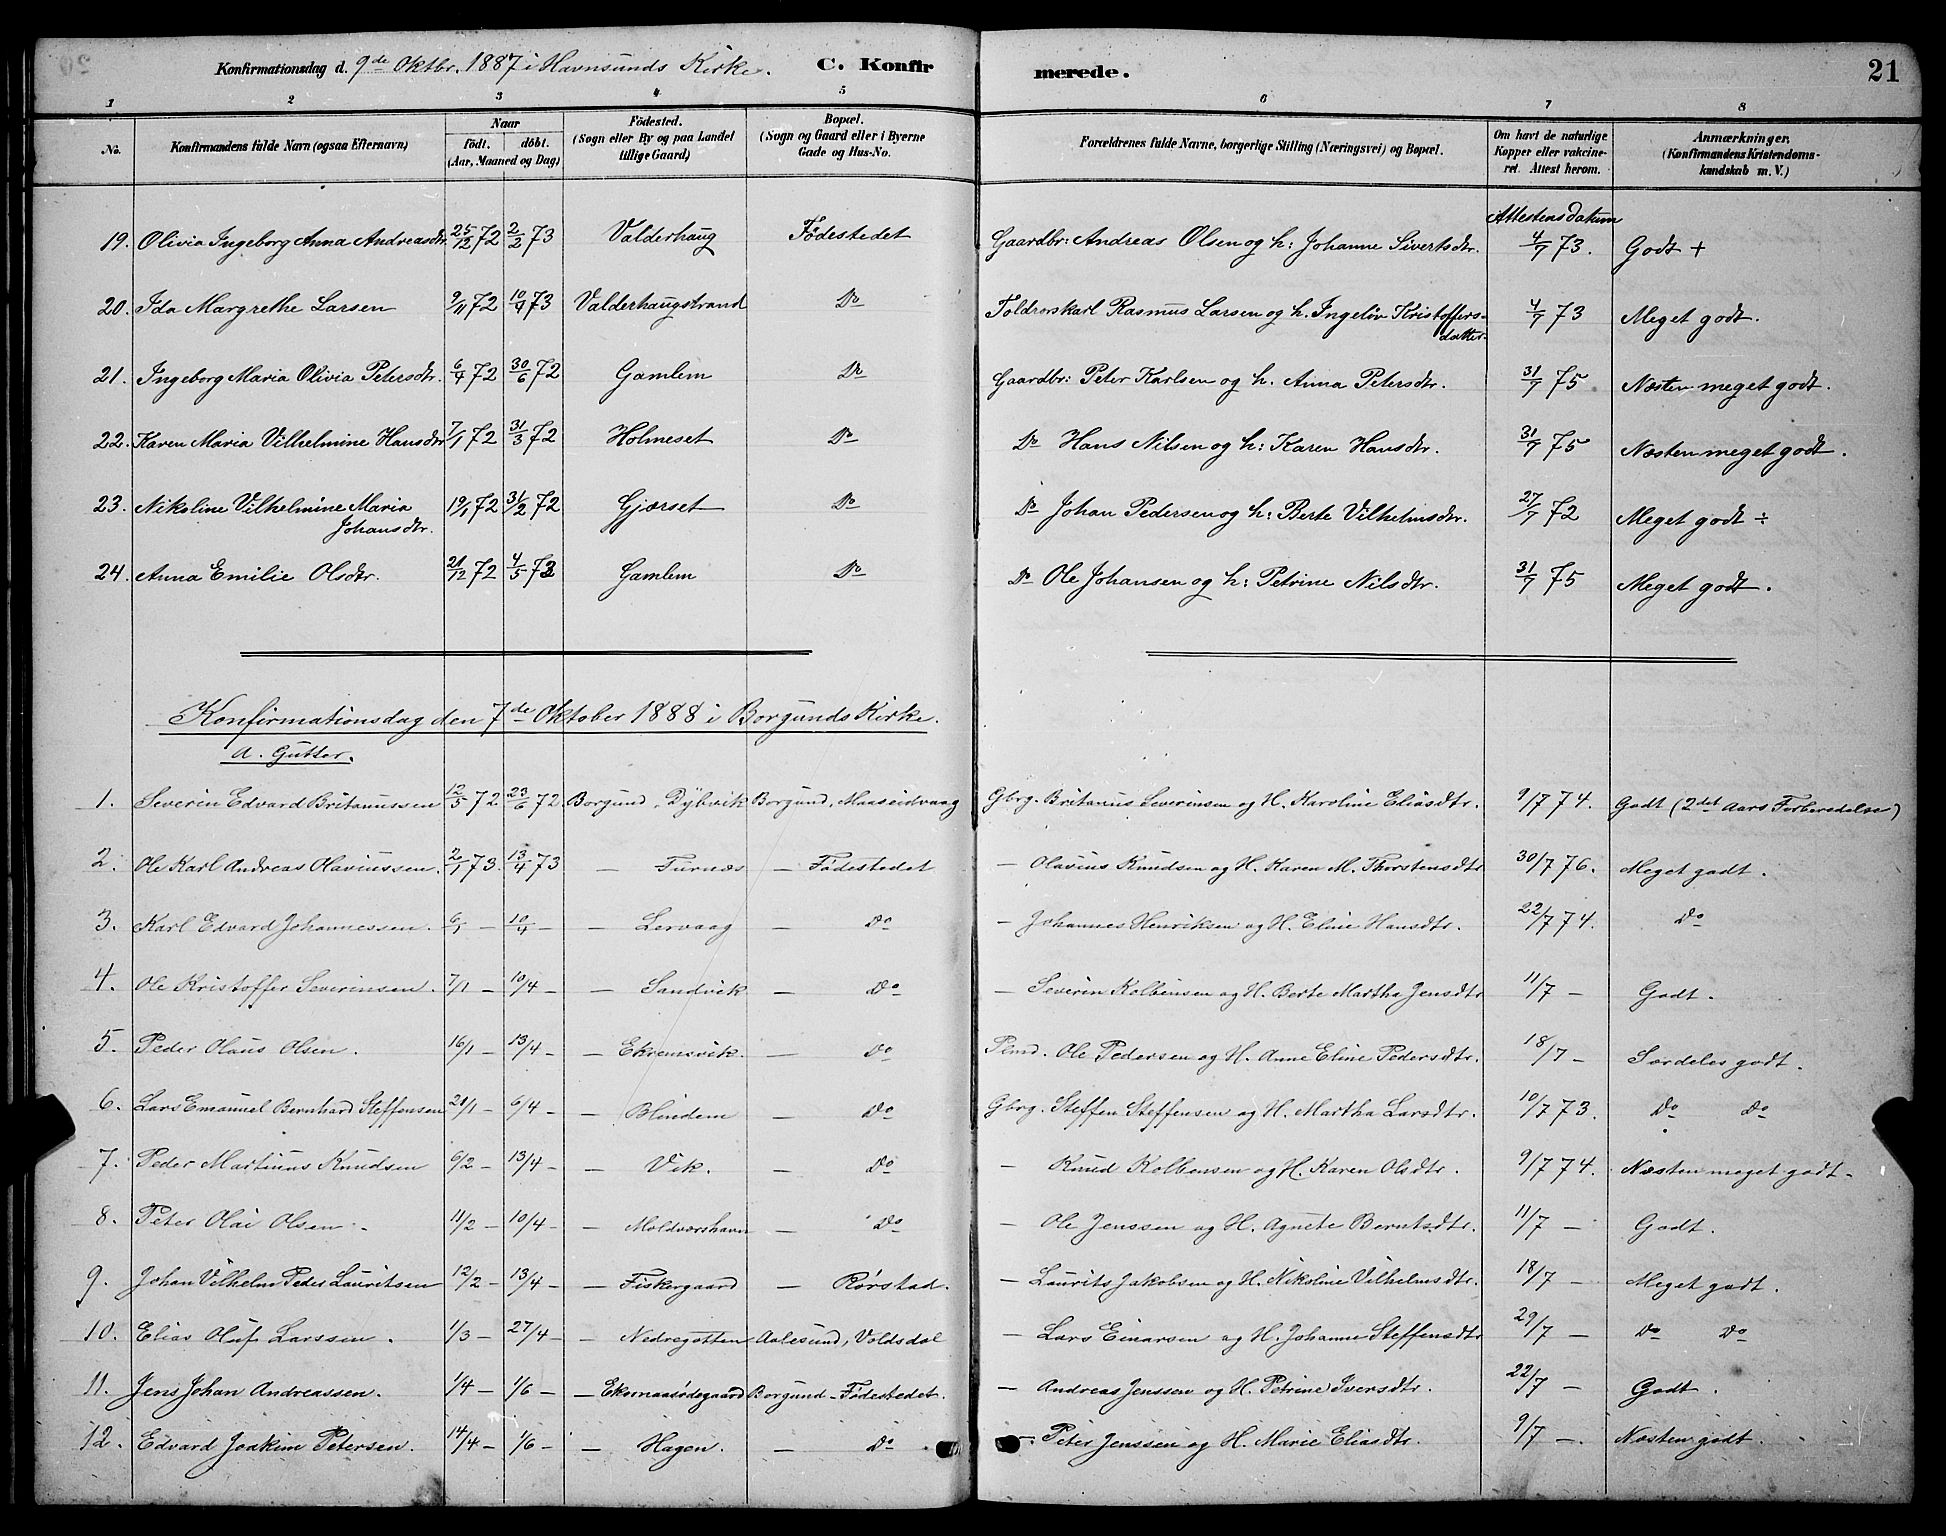 Konfirmationsdag d. 9de Oktbr. 1887 i Havnsunds Kirke. C. Konfirmerede. 21
1 2 3 4 5 6 7 8
No. Konfirmandens fulde Navn (ogsaa Efternavn) Naar födt. döbt. (Aar, Maaned og Dag) Födested. (Sogn eller By og paa Landet tillige Gaard) Bopæl. (Sogn og Gaard eller i Byerne Gade og Hus-No. Forældrenes fulde Navne, borgerlige Stilling (Næringsvei) og Bopæl. Om havt de naturlige Kopper eller vakcineret. Attest herom. Anmærkninger. (Konfirmandens Kristendomskundskab m. V.)
Attestens datum
19. Olivia Ingeborg Anna Andreasdtr. 25/12 72 2/2 73 Valderhaug Fødestedet Gaardbr: Andreas Olsen og h: Johanne Sivertsdtr. 4/7 73. Godt +
20. Ida Margrethe Larsen 9/11 72 10/4 73 Valderhaugstrand Do Toldrorskarl Rasmus Larsen og h. Ingeløv Kristoffersdatter. 4/7 73 Meget godt.
21. Ingeborg Maria Olivia Petersdtr. 6/4 72 30/6 72 Gamlem Do Gaardbr: Peter Karlsen og h. Anna Petersdtr. 31/7 75 Næsten meget godt.
22. Karen Maria Vilhelmine Hansdtr 7/1 72 31/3 72 Holmeset Do Do Hans Nilsen og h: Karen Hansdtr. 31/7 75 Næsten meget godt.
23. Nikoline Vilhelmine Maria Johansdtr. 19/1 72 31/2 72 Gjørset Do Do Johan Pedersen og h: Berte Vilhelmsdtr. 27/7 72 Meget godt ÷
24. Anna Emilie Olsdtr. 21/12 72 4/5 73 Gamlem Do Do Ole Johansen og h: Petrine Nilsdtr. 31/7 75 Meget godt.
Konfirmationsdag den 7de Oktober 1888 i Borgunds Kirke.
A. Gutter.
1. Severin Edvard Britanussen 12/5 72. 23/6 72. Borgund, Dybvik Borgund, Maseidvaag Gbrg. Britanus Severinsen og H. Karoline Eliasdtr. 9/7 74. Godt (2det Aars Forberedelse)
2. Ole Karl Andreas Olaviussen. 2/1 73. 13/4 73 — Furnæs — Fødestedet — Olavius Knudsen og H. Karen M. Thorstensdtr 30/7 76. Meget godt.
3. Karl Edvard Johannessen. 6/1 — 10/4 — — Lervaag — Do — Johannes Henriksen og H. Eline Hansdtr. 22/7 74. Do
4. Ole Kristoffer Severinsen. 7/1 — 10/4 — — Sandvik — Do — Severin Kolbensen og H. Berte Martha Jensdtr 11/7 — Godt.
5. Peder Olaus Olsen. 16/1 — 13/4 — — Ekremsvik. — Do Plmd. Ole Pedersen og H. Anne Eline Pedersdtr. 18/7 — Særdeles godt.
6. Lars Emanuel Bernhard Steffensen 21/1 — 6/4 — — Blindem — Do Gbrg. Steffen Steffensen og H. Martha Larsdtr. 10/7 73. Do Do
7. Peder Martinus Knudsen 6/2 — 13/4 — — Vik. — Do — Knud Kolbensen og H. Karen Olsdtr. 9/7 74. Næsten meget godt.
8. Peter Olai Olsen. 11/2 — 10/4 — — Moldværshavn — Do — Ole Jenssen og H. Agnete Berntsdtr. 11/7 — Godt.
9. Johan Vilhelm Peder Lauritsen 12/2 — 13/4 — — Fiskergaard — Rørstad. — Laurits Jakobsen og H. Nikoline Vilhelmsdtr. 18/7 — Meget godt.
10. Elias Oluf Larssen. 1/3 — 27/4 — — Nedregotten Aalesund, Voldsdal — Lars Einarsen og H. Johanne Steffensdtr 29/7 — Do Do
11. Jens Johan Andreassen. 1/4 — 1/6 — — Ekornaasødegaard Borgund — Fødestedet. — Andreas Jenssen og H. Petrine Iversdtr. 22/7 — Godt.
12. Edvard Joakim Petersen. 14/4 — 1/6 — — Hagen. — Do — Peter Jenssen og H. Marie Eliasdtr. 9/7 — Næsten godt.